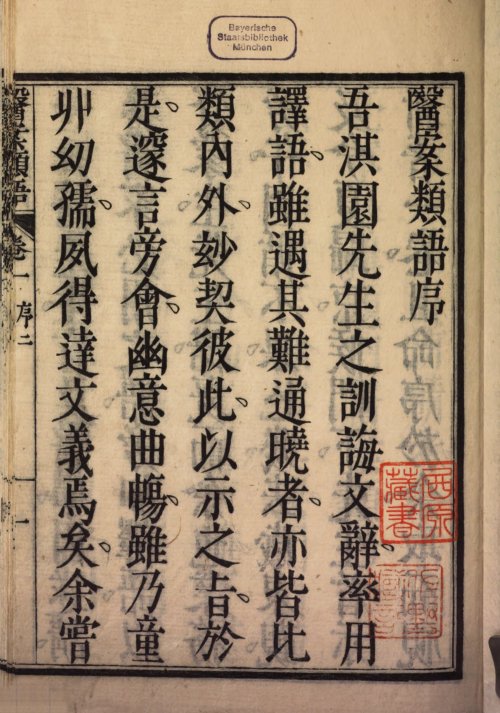 Bayerische
Staatsbibliothek
München
醫案類語序
吾淇園先生之訓誨文辭率用
譯語雖遇其難通曉者亦皆比
類內外玅契彼此以示之旨於
是邃言旁會幽意曲暢雖乃童
丱幼孺夙得達文義焉矣余嘗
醫案類語 卷一 序二 一
藏書